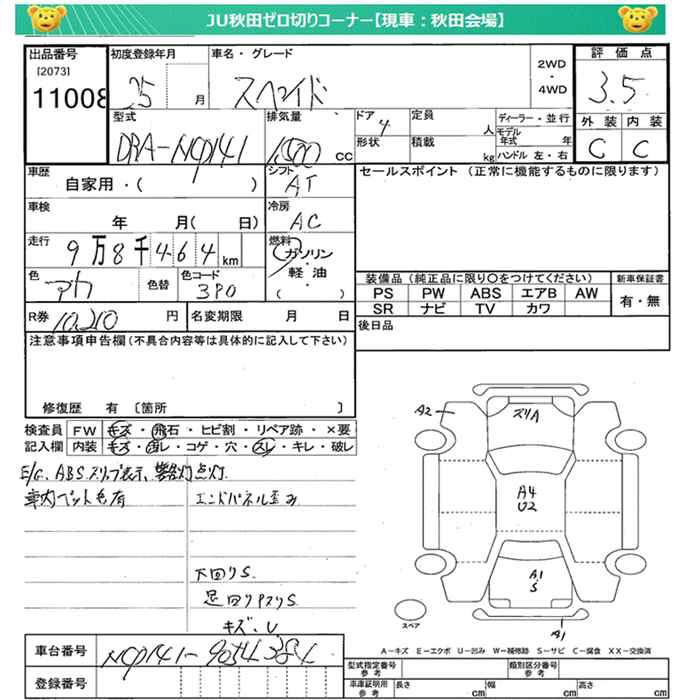 JU秋田ゼロ切りコーナー【現車：秋田会場】
出品番号 初度登録年月 車名・グレード 評価点
[2073]
11008 25 月 スペイド 2WD ・ 4WD 3.5
型式 排気量 ドア 定員 ディーラー・並行 外装 内装
DBA-NCP141 1,500 cc 4 人 モデル年式 年 C C
形状 積載 kg ハンドル 左・右
車歴 シフト セールスポイント（正常に機能するものに限ります）
自家用・（ ） AT
車検 冷房
年 月（ 日） AC
走行 燃料
9万8千464km ガソリン
軽油・
（ ）
色 色替 色コード
アカ 3P0
装備品（純正品に限り○をつけてください） 新車保証書
PS PW ABS エアB AW 有・無
SR ナビ TV カワ
R券 10,210 円 名変期限 月 日 後日品
注意事項申告欄（不具合内容等は具体的に記入して下さい）
修復歴 有 〔箇所 〕
検査員 FW キズ・飛石・ヒビ割・リペア跡・×要
記入欄 内装 キズ・汚レ・コゲ・穴・スレ・キレ・破レ
E/G、ABSスリップ表示、警告灯点灯
車内ペット毛有 エンドパネル歪み
下回りS
足回りサビS
キズ、U
A2
ズリA
A4
U2
A1
S
A1
スペア
A－キズ E－エクボ U－凹み W－補修跡 S－サビ C－腐食 XX－交換済
車台番号 NCP141-9054384
登録番号
型式指定番号 参考 類別区分番号 参考
車庫証明用 参考 長さ cm 幅 cm 高さ cm